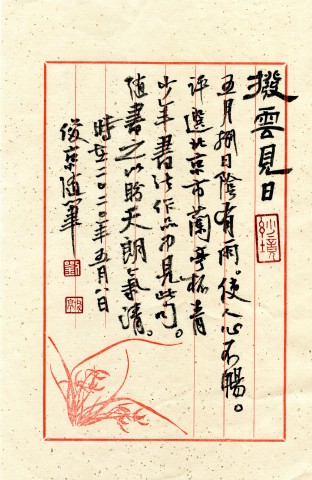 撥雲見日
五月捌日陰有雨。使人心不暢。
评選北京市蘭亭杯青
少年書法作品中見此句。
随書之以盼天朗氣清。
時在二〇二〇年五月八日
俊京随筆
劉